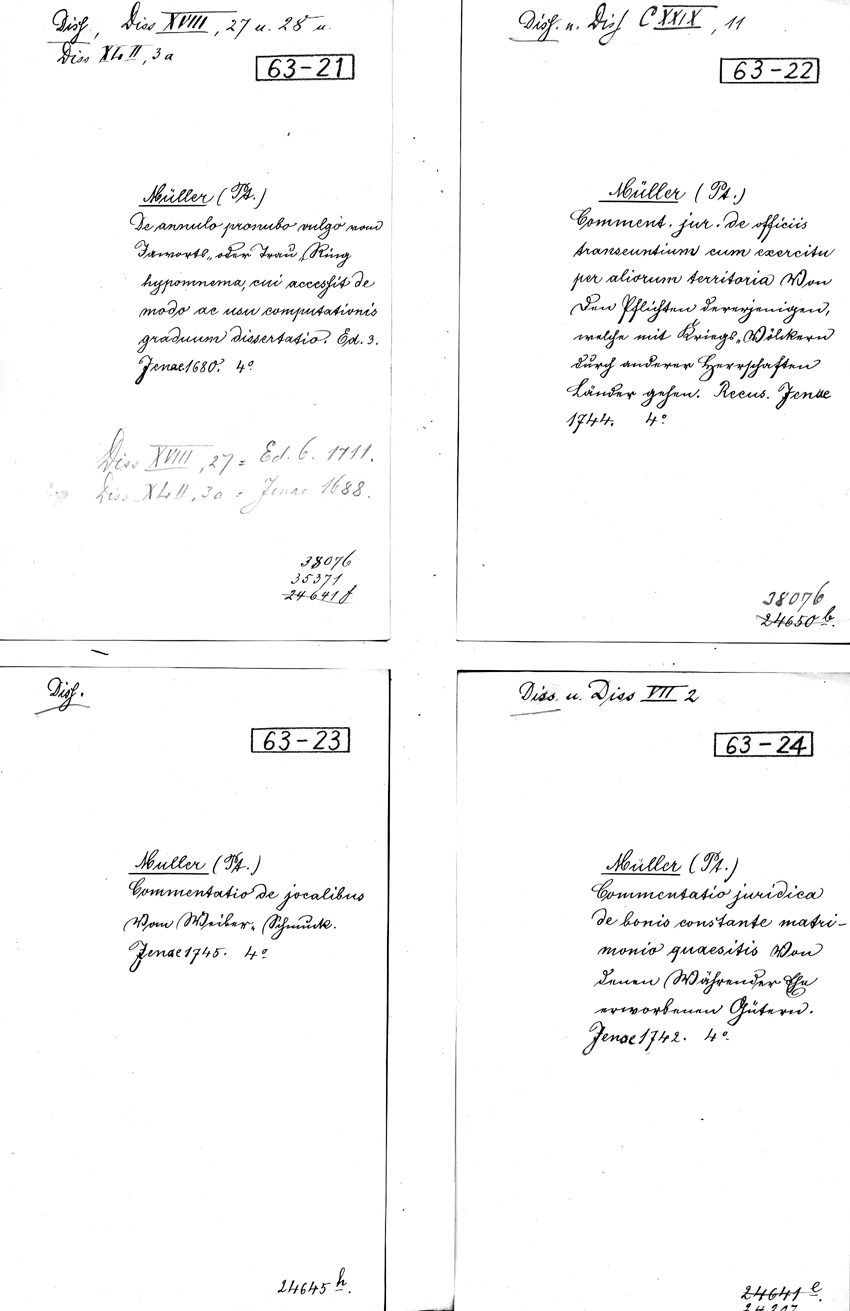 Diss, Diss XVIII, 27 u. 28 u.
Diss XLII, 3a
63-21
Müller (Pt.)
De annulo pronubo vulgò vom
Jaworts- oder Trau-Ring
hypomnema, cui accessit de
modo ac usu computationis
graduum dissertatio. Ed. 3.
Jenae 1680. 4°
Diss XVIII, 27 = Ed. 6. 1711.
Diss XLII, 3a = Jenae 1688.
38076
35371
24641 f
Diss. u. Diss CXXIX, 11
63-22
Müller (Pt.)
Comment. jur. de officiis
transeuntium cum exercitu
per aliorum territoria Von
den Pflichten dererjenigen,
welche mit Kriegs-Völckern
durch anderer Herrschaften
Länder gehen. Recus. Jenae
1744. 4°
38076
24650 b.
Diss.
63-23
Müller (Pt.)
Commentatio de jocalibus
Vom Weiber-Schmuck.
Jenae 1745. 4°
24645 h.
Diss. u. Diss VII 2
63-24
Müller (Pt.)
Commentatio juridica
de bonis constante matri-
monio quaesitis Von
denen Währender Ehe
erworbenen Gütern.
Jenae 1742. 4°
24641 e.